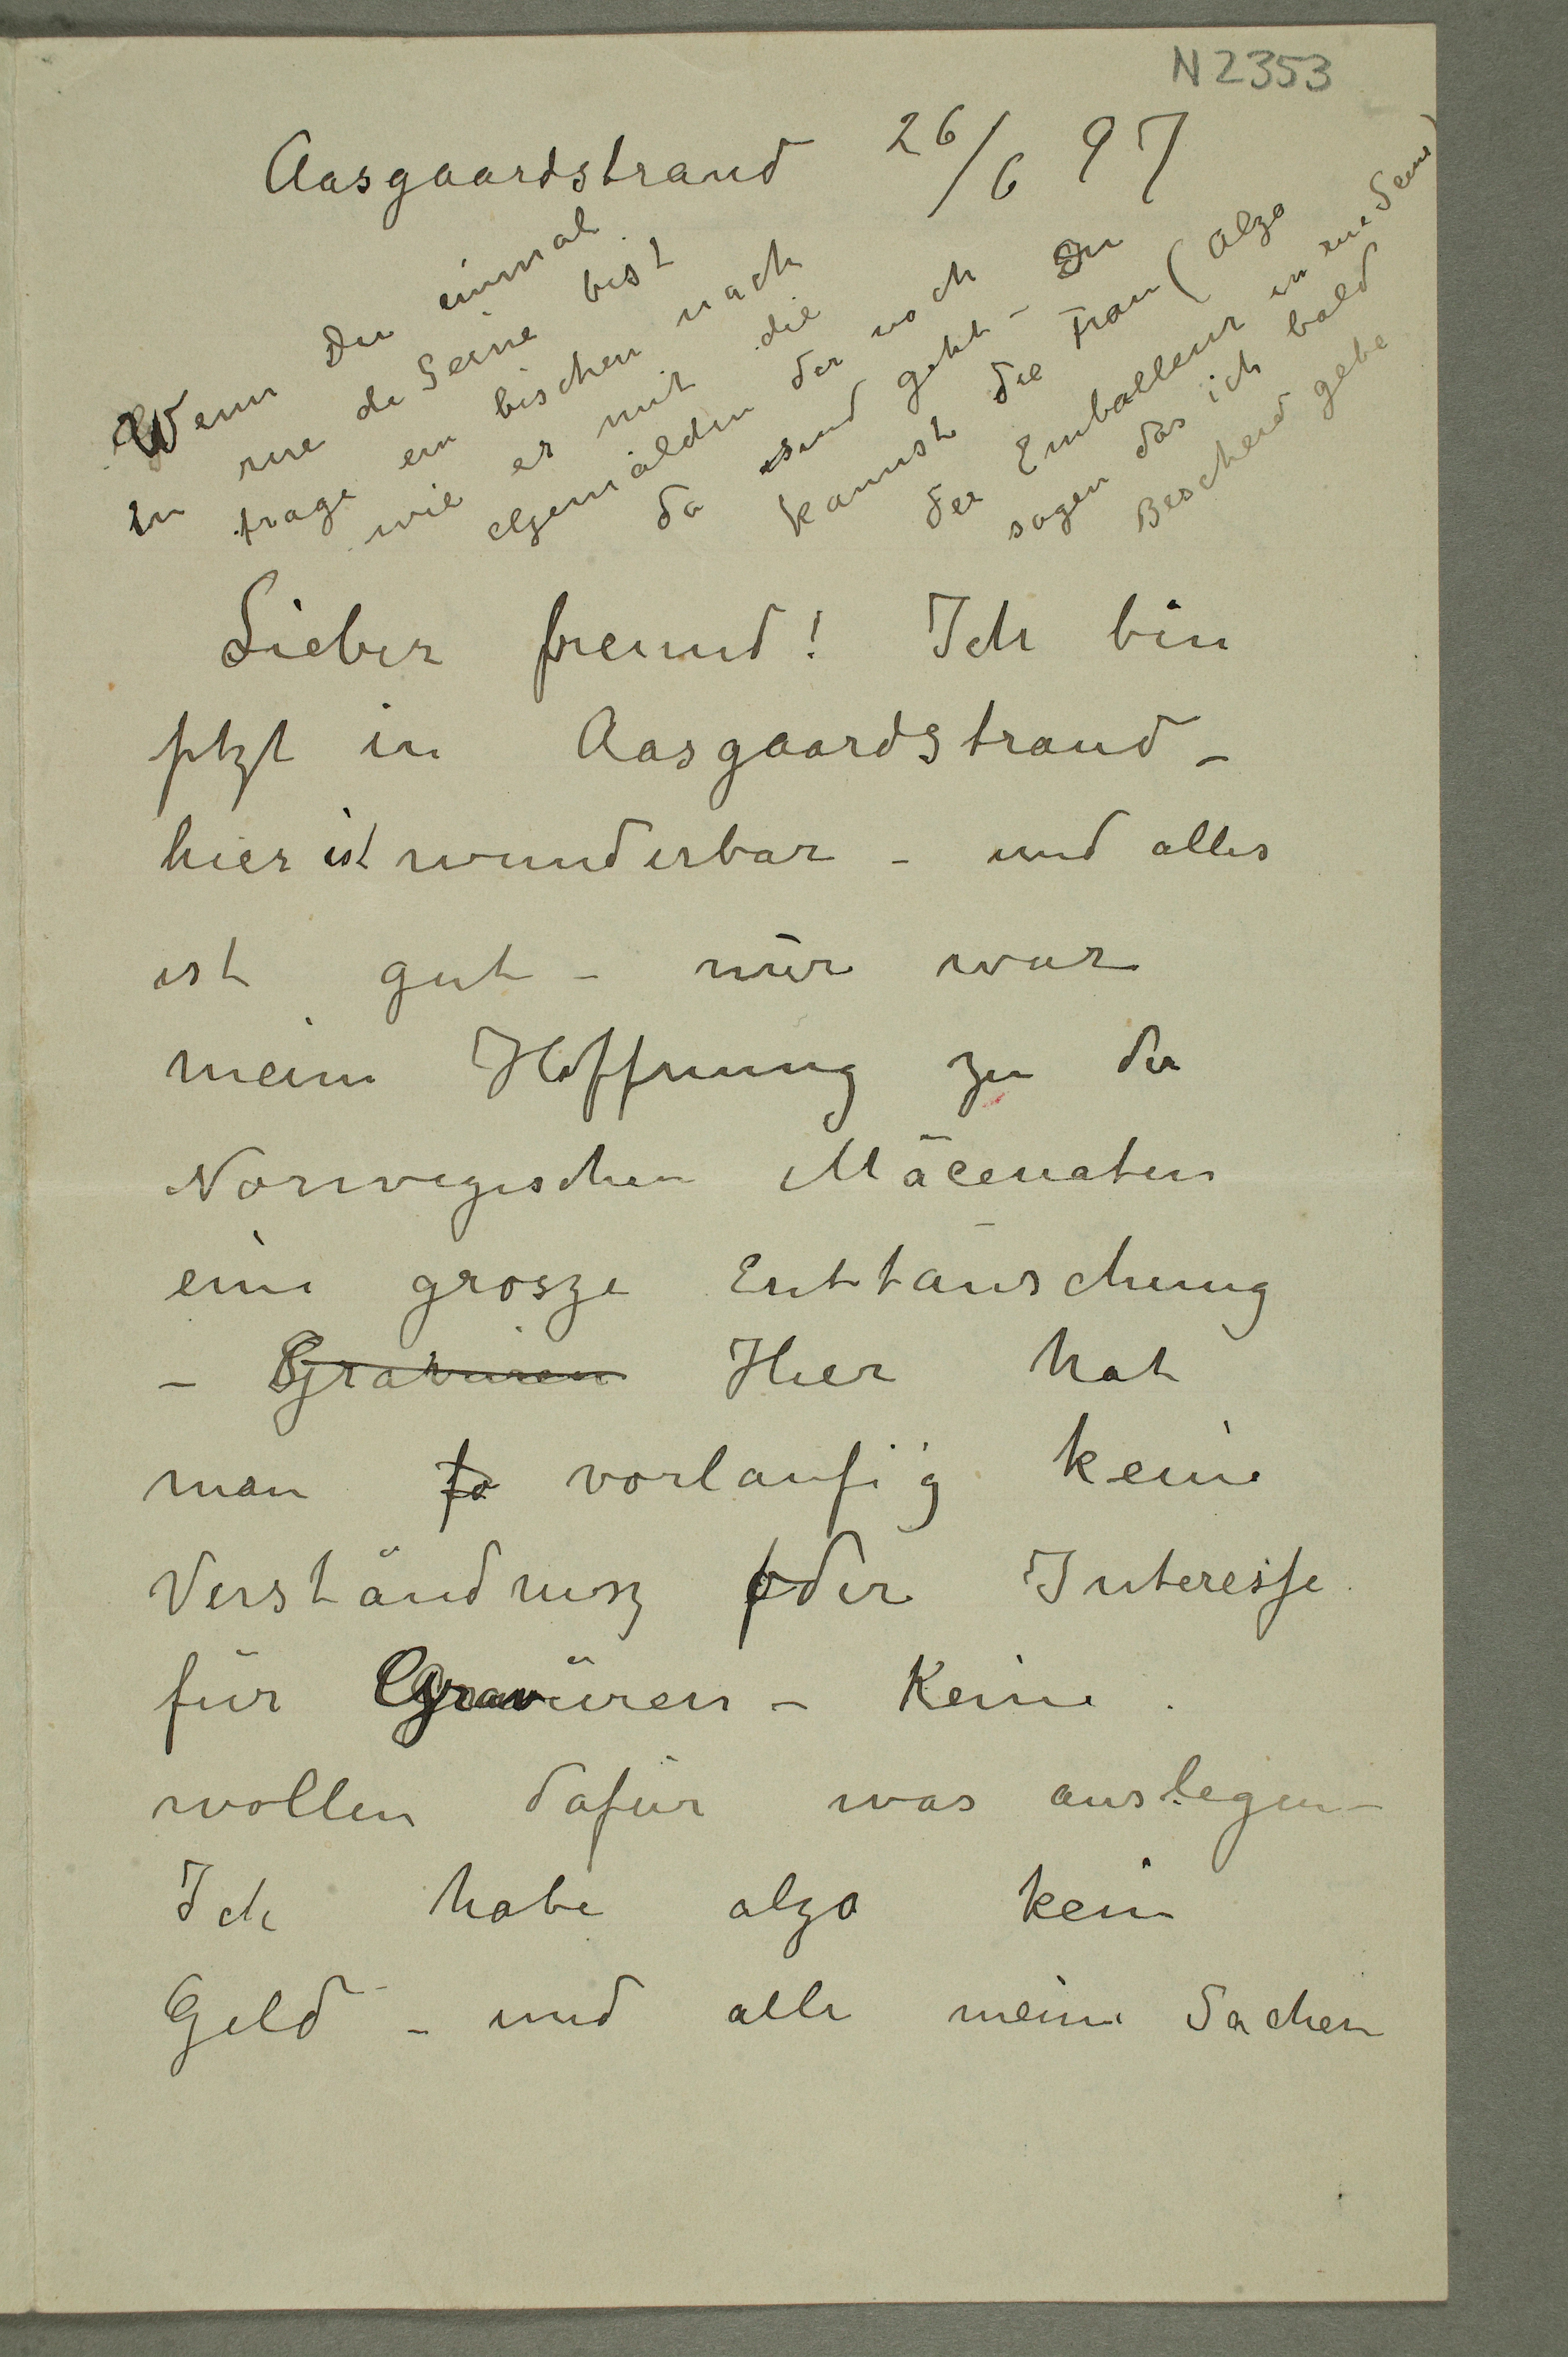 N 2353
Aasgaardstrand 26/6 97
Wenn Du einmal
in rue de Seine bist
frage ein bischen nach
wie es mit die
gemälden der noch
da sind geht – Du
kannst die Frau (Alzo
der Emballeur in rue Seine)
sagen das ich bald
Bescheid gebe
Lieber freund! Ich bin
jetzt in Aasgaardstrand –
hier ist wunderbar – und alles
ist gut – nur war
meine Hoffnung zu der
Norwegischen Mäcenaten
eine grosze Enttäuschung
– Gravüren Hier hat
man vorlaufig keine
Verständnisz oder Interesse
für Gravüren – Keine
wollen dafür was auslegen –
Ich habe alzo kein
Geld – und alle meine Sachen